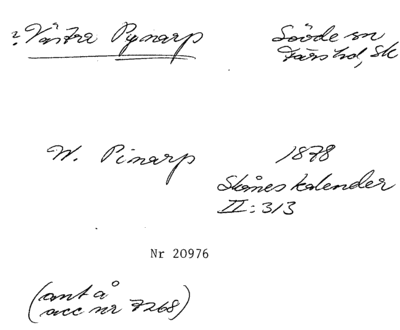 ? Västra Pynarp
Sövde sn
Färs hd, Sk
W. Pinarp
1878
Skånes kalender
II: 313
Nr 20976
(ant å
acc nr 7268)